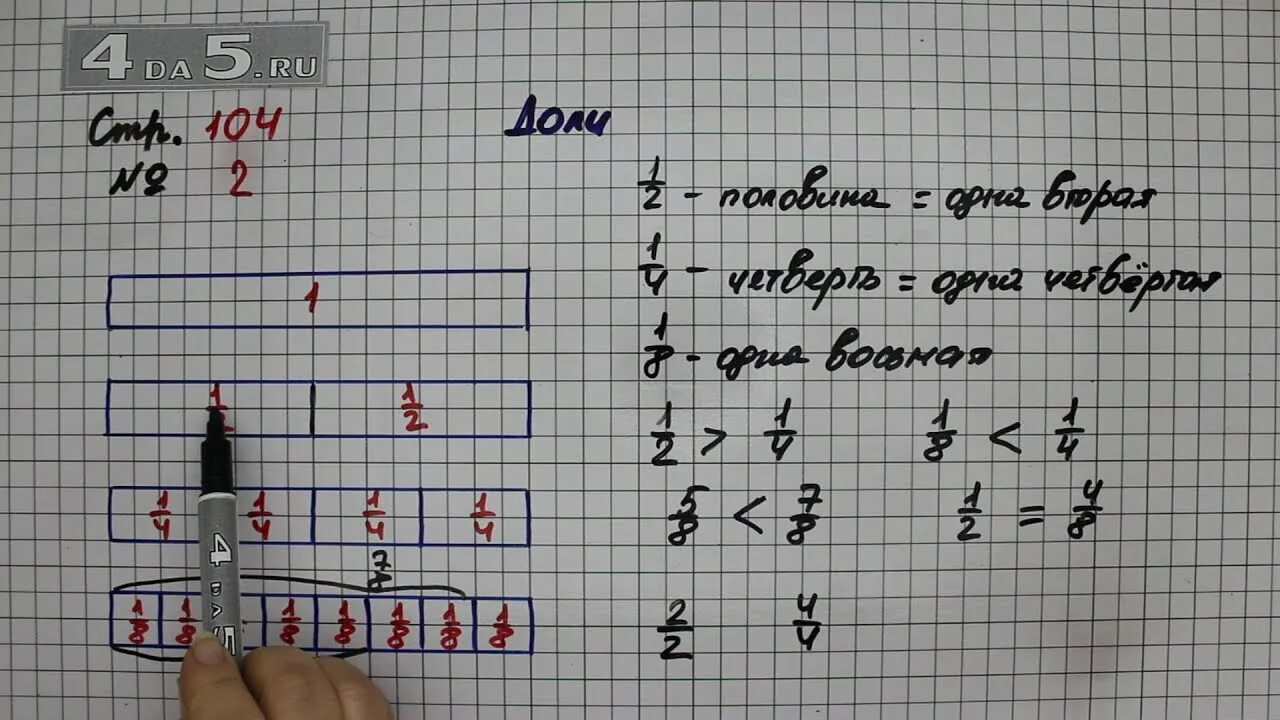 4DA5.RU
Стр. 104
№ 2
Доли
1/2 - половина = одна вторая
1/4 - четверть = одна четвёртая
1/8 - одна восьмая
1
1/2 > 1/4 1/8 < 1/4
1/2
5/8 < 7/8 1/2 = 4/8
1/4 1/4 1/4 1/4
7/8
2/2 4/4
1/8 1/8 1/8 1/8 1/8 1/8 1/8
4DA5